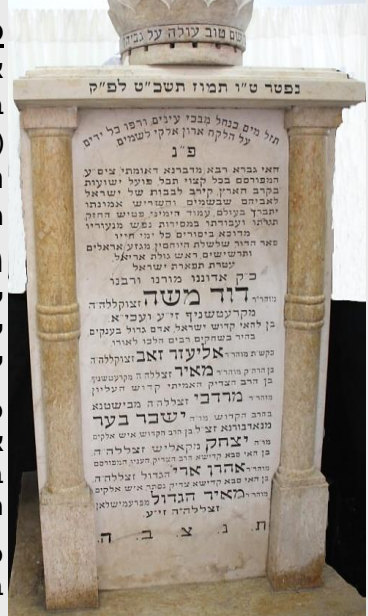 שם טוב עולה על גביהן
נפטר ט"ו תמוז תשכ"ט לפ"ק
תזל מים כנחל מבכי עינים, ורפו כל ידים
על הלקח ארון אלקי לשמים
פ"נ
האי גברא רבא מדברנא דאומתי, ציס"ע
המפורסם בכל קצוי תבל, פועל ישועות
בקרב הארץ, קירב לבבות של ישראל
לאביהם שבשמים והשריש אמונתו
יתברך בעולם, עמוד הימיני, פטיש החזק
תורתו ועבודתו במסירות נפש מנעוריו
מדוכא ביסורים כל ימי חייו
פאר הדור שלשלת היוחסין, מגזע אראלים
ותרשישים, ראש גולת אריאל,
עטרת תפארת ישראל
כ"ק אדוננו מורנו ורבנו
מוהר"ר דוד משה זצוקללה"ה
מקרעטשניף זי"ע ועכי"א
בן לחאי קדוש ישראל, אדם גדול בענקים
בהיר בשחקים רבים הלכו לאורו
כקש"ת מוהר"ר אליעזר זאב זצוקללה"ה
בן הרה"ק מוהר"ר מאיר זצללה"ה מקרעטשניף
בן הרב הצדיק האמיתי קדוש העליון
מוהר"ר מרדכי זצללה"ה מבישטנא
בהרב הקדוש מו"ה ישכר בער
מנאדבורנא זצ"ל בן הרב הקדוש איש אלקים
מו"ה יצחק מקאליש זצללה"ה
בן האי סבא קדישא הרב הצדיק הענין המפורסם
מוהר"ר אהרן ארי' הגדול זצללה"ה
בן האי סבא קדישא צדיק נסתר איש אלקים
מוהר"ר מאיר הגדול מפרעמישלאן
זצללה"ה זי"ע
ת. נ. צ. ב. ה.